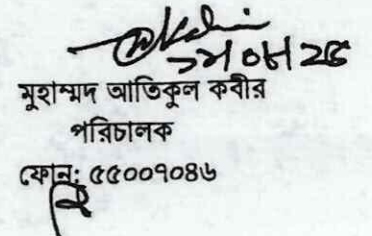 মুহাম্মদ আতিকুল কবীর
পরিচালক
ফোন: ৫৫০০৭০৪৬